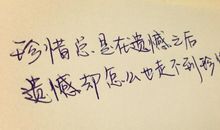 珍惜总是在遗憾之后
遗憾却怎么也走不到珍惜